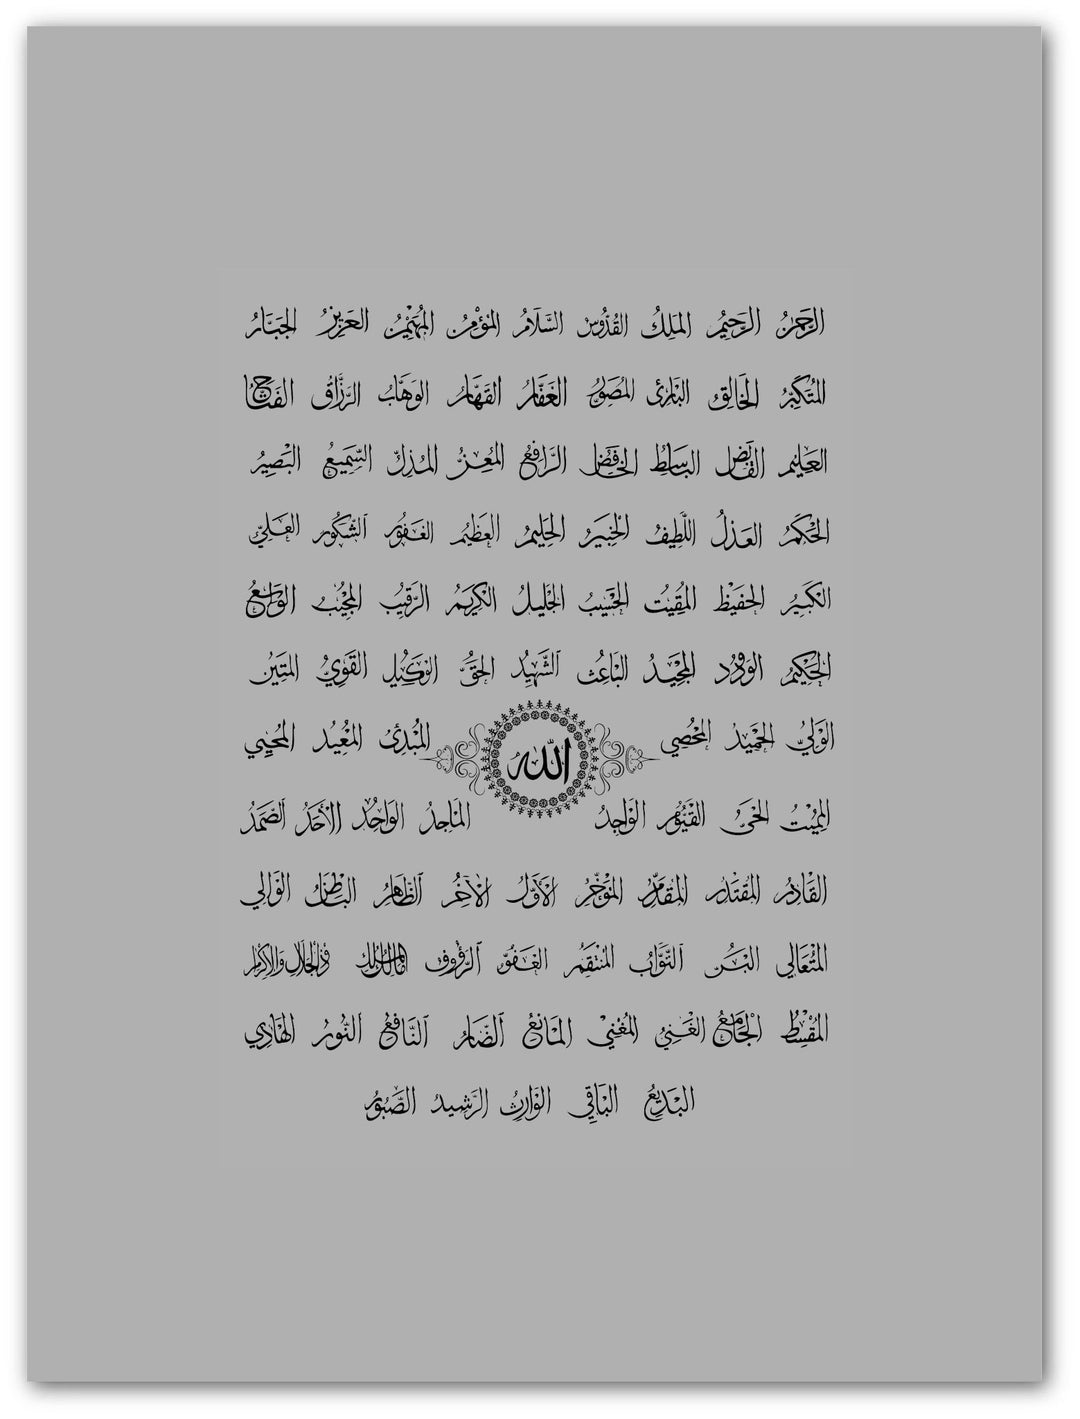 الرَّحْمَنُ الرَّحِيمُ المَلِكُ القُدُّوسُ السَّلَامُ المُؤْمِنُ المُهَيْمِنُ العَزِيزُ الجَبَّارُ
المُتَكَبِّرُ الخَالِقُ البَارِئُ المُصَوِّرُ الغَفَّارُ القَهَّارُ الوَهَّابُ الرَّزَّاقُ الفَتَّاحُ
العَلِيمُ القَابِضُ البَاسِطُ الخَافِضُ الرَّافِعُ المُعِزُّ المُذِلُّ السَّمِيعُ البَصِيرُ
الحَكَمُ العَدْلُ اللَّطِيفُ الخَبِيرُ الحَلِيمُ العَظِيمُ الغَفُورُ الشَّكُورُ العَلِيُّ
الكَبِيرُ الحَفِيظُ المُقِيتُ الحَسِيبُ الجَلِيلُ الكَرِيمُ الرَّقِيبُ المُجِيبُ الوَاسِعُ
الحَكِيمُ الوَدُودُ المَجِيدُ البَاعِثُ الشَّهِيدُ الحَقُّ الوَكِيلُ القَوِيُّ المَتِينُ
الوَلِيُّ الحَمِيدُ المُحْصِي اللّٰه المُبْدِئُ المُعِيدُ المُحْيِي
المُمِيتُ الحَيُّ القَيُّومُ الوَاجِدُ المَاجِدُ الوَاحِدُ الأَحَدُ الصَّمَدُ
القَادِرُ المُقْتَدِرُ المُقَدِّمُ المُؤَخِّرُ الأَوَّلُ الآخِرُ الظَّاهِرُ البَاطِنُ الوَالِي
المُتَعَالِي البَرُّ التَّوَّابُ المُنْتَقِمُ العَفُوُّ الرَّؤُوفُ مَالِكُ المُلْكِ ذُو الجَلَالِ وَالإِكْرَامِ
المُقْسِطُ الجَامِعُ الغَنِيُّ المُغْنِيُ المَانِعُ الضَّارُ النَّافِعُ النُّورُ الهَادِي
البَدِيعُ البَاقِي الوَارِثُ الرَّشِيدُ الصَّبُورُ